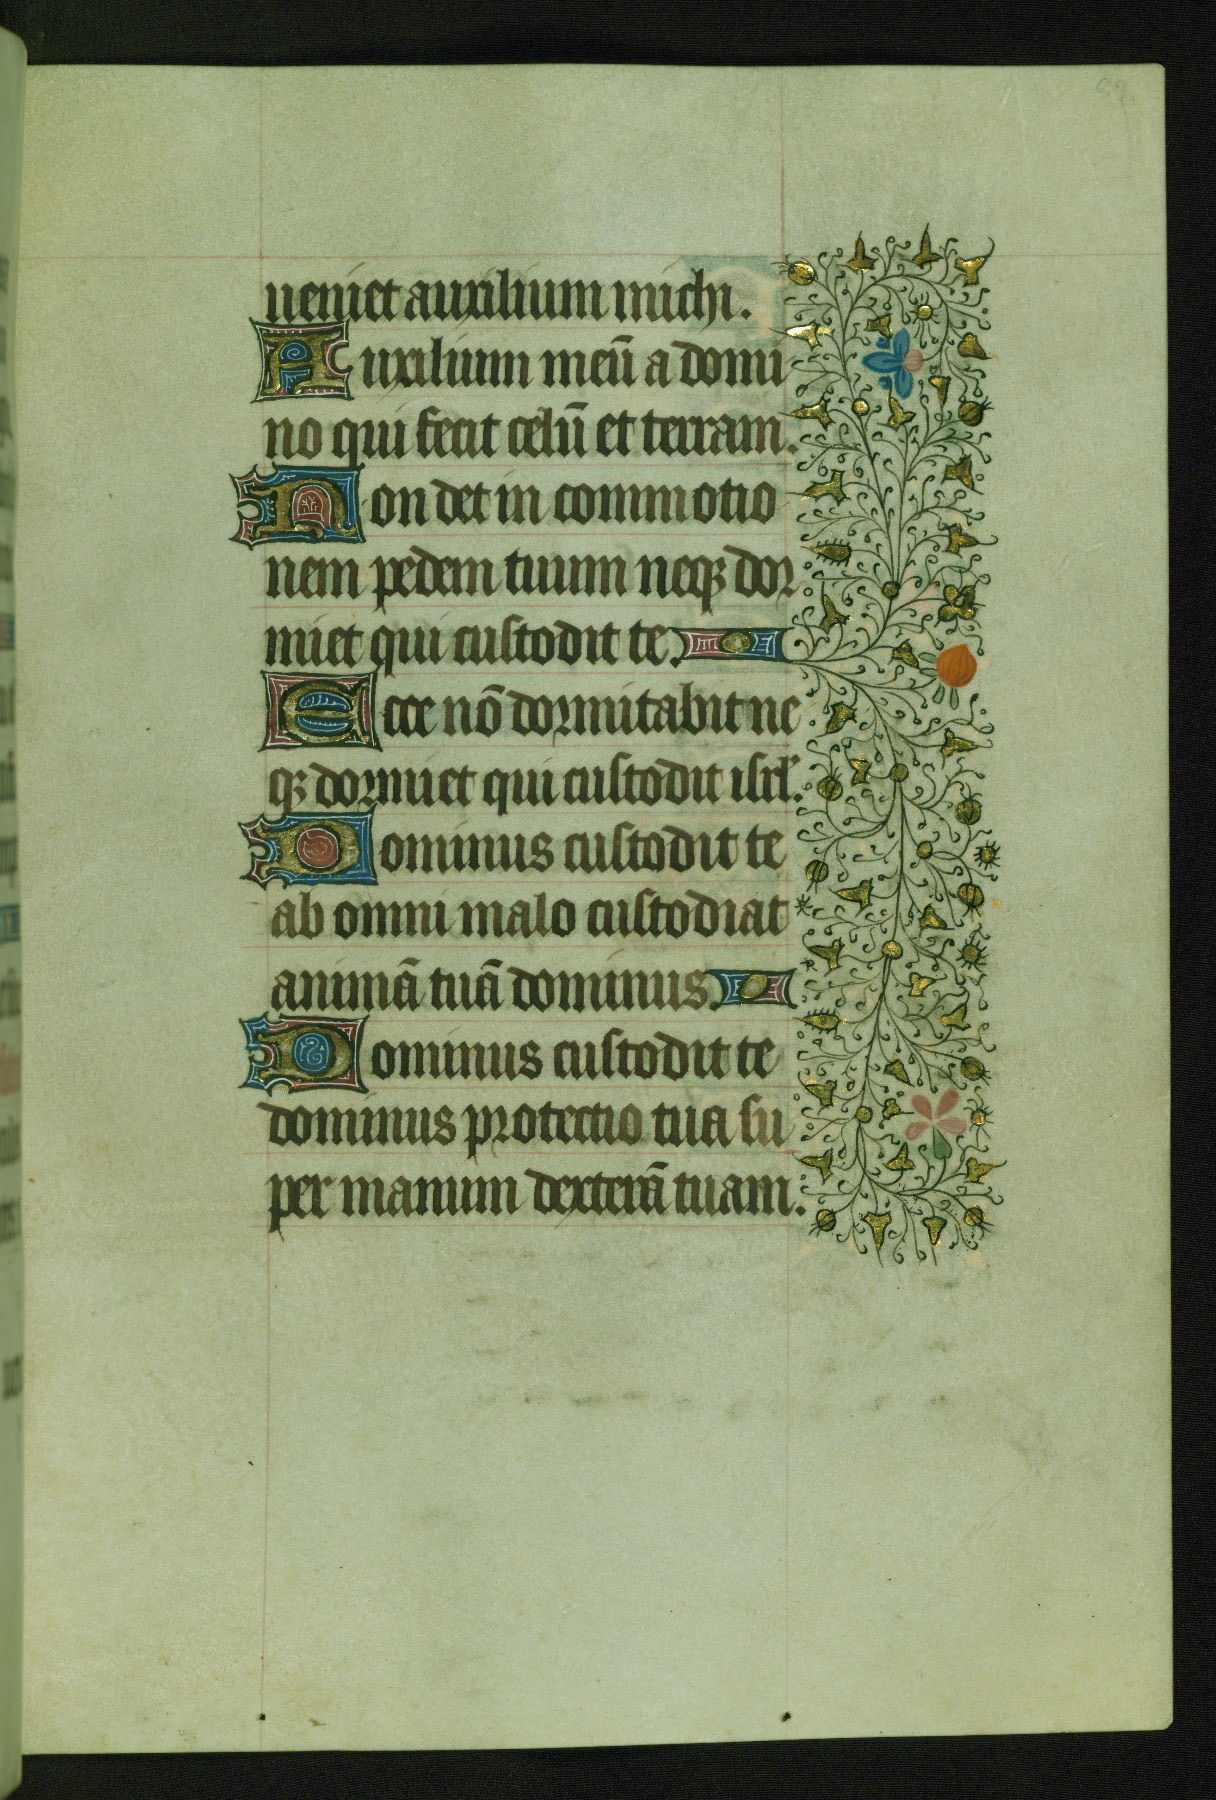 ueniet auxilium michi.
Auxilium meū a domi
no qui fecit celū et terram.
Non det in commotio
nem pedem tuum neqꝫ dor
miet qui custodit te.
Ecce nō dormitabit ne
qꝫ dormiet qui custodit isrl'.
Dominus custodit te
ab omni malo custodiat
animā tuā dominus.
Dominus custodit te
dominus protectio tua su
per manum dexterā tuam.